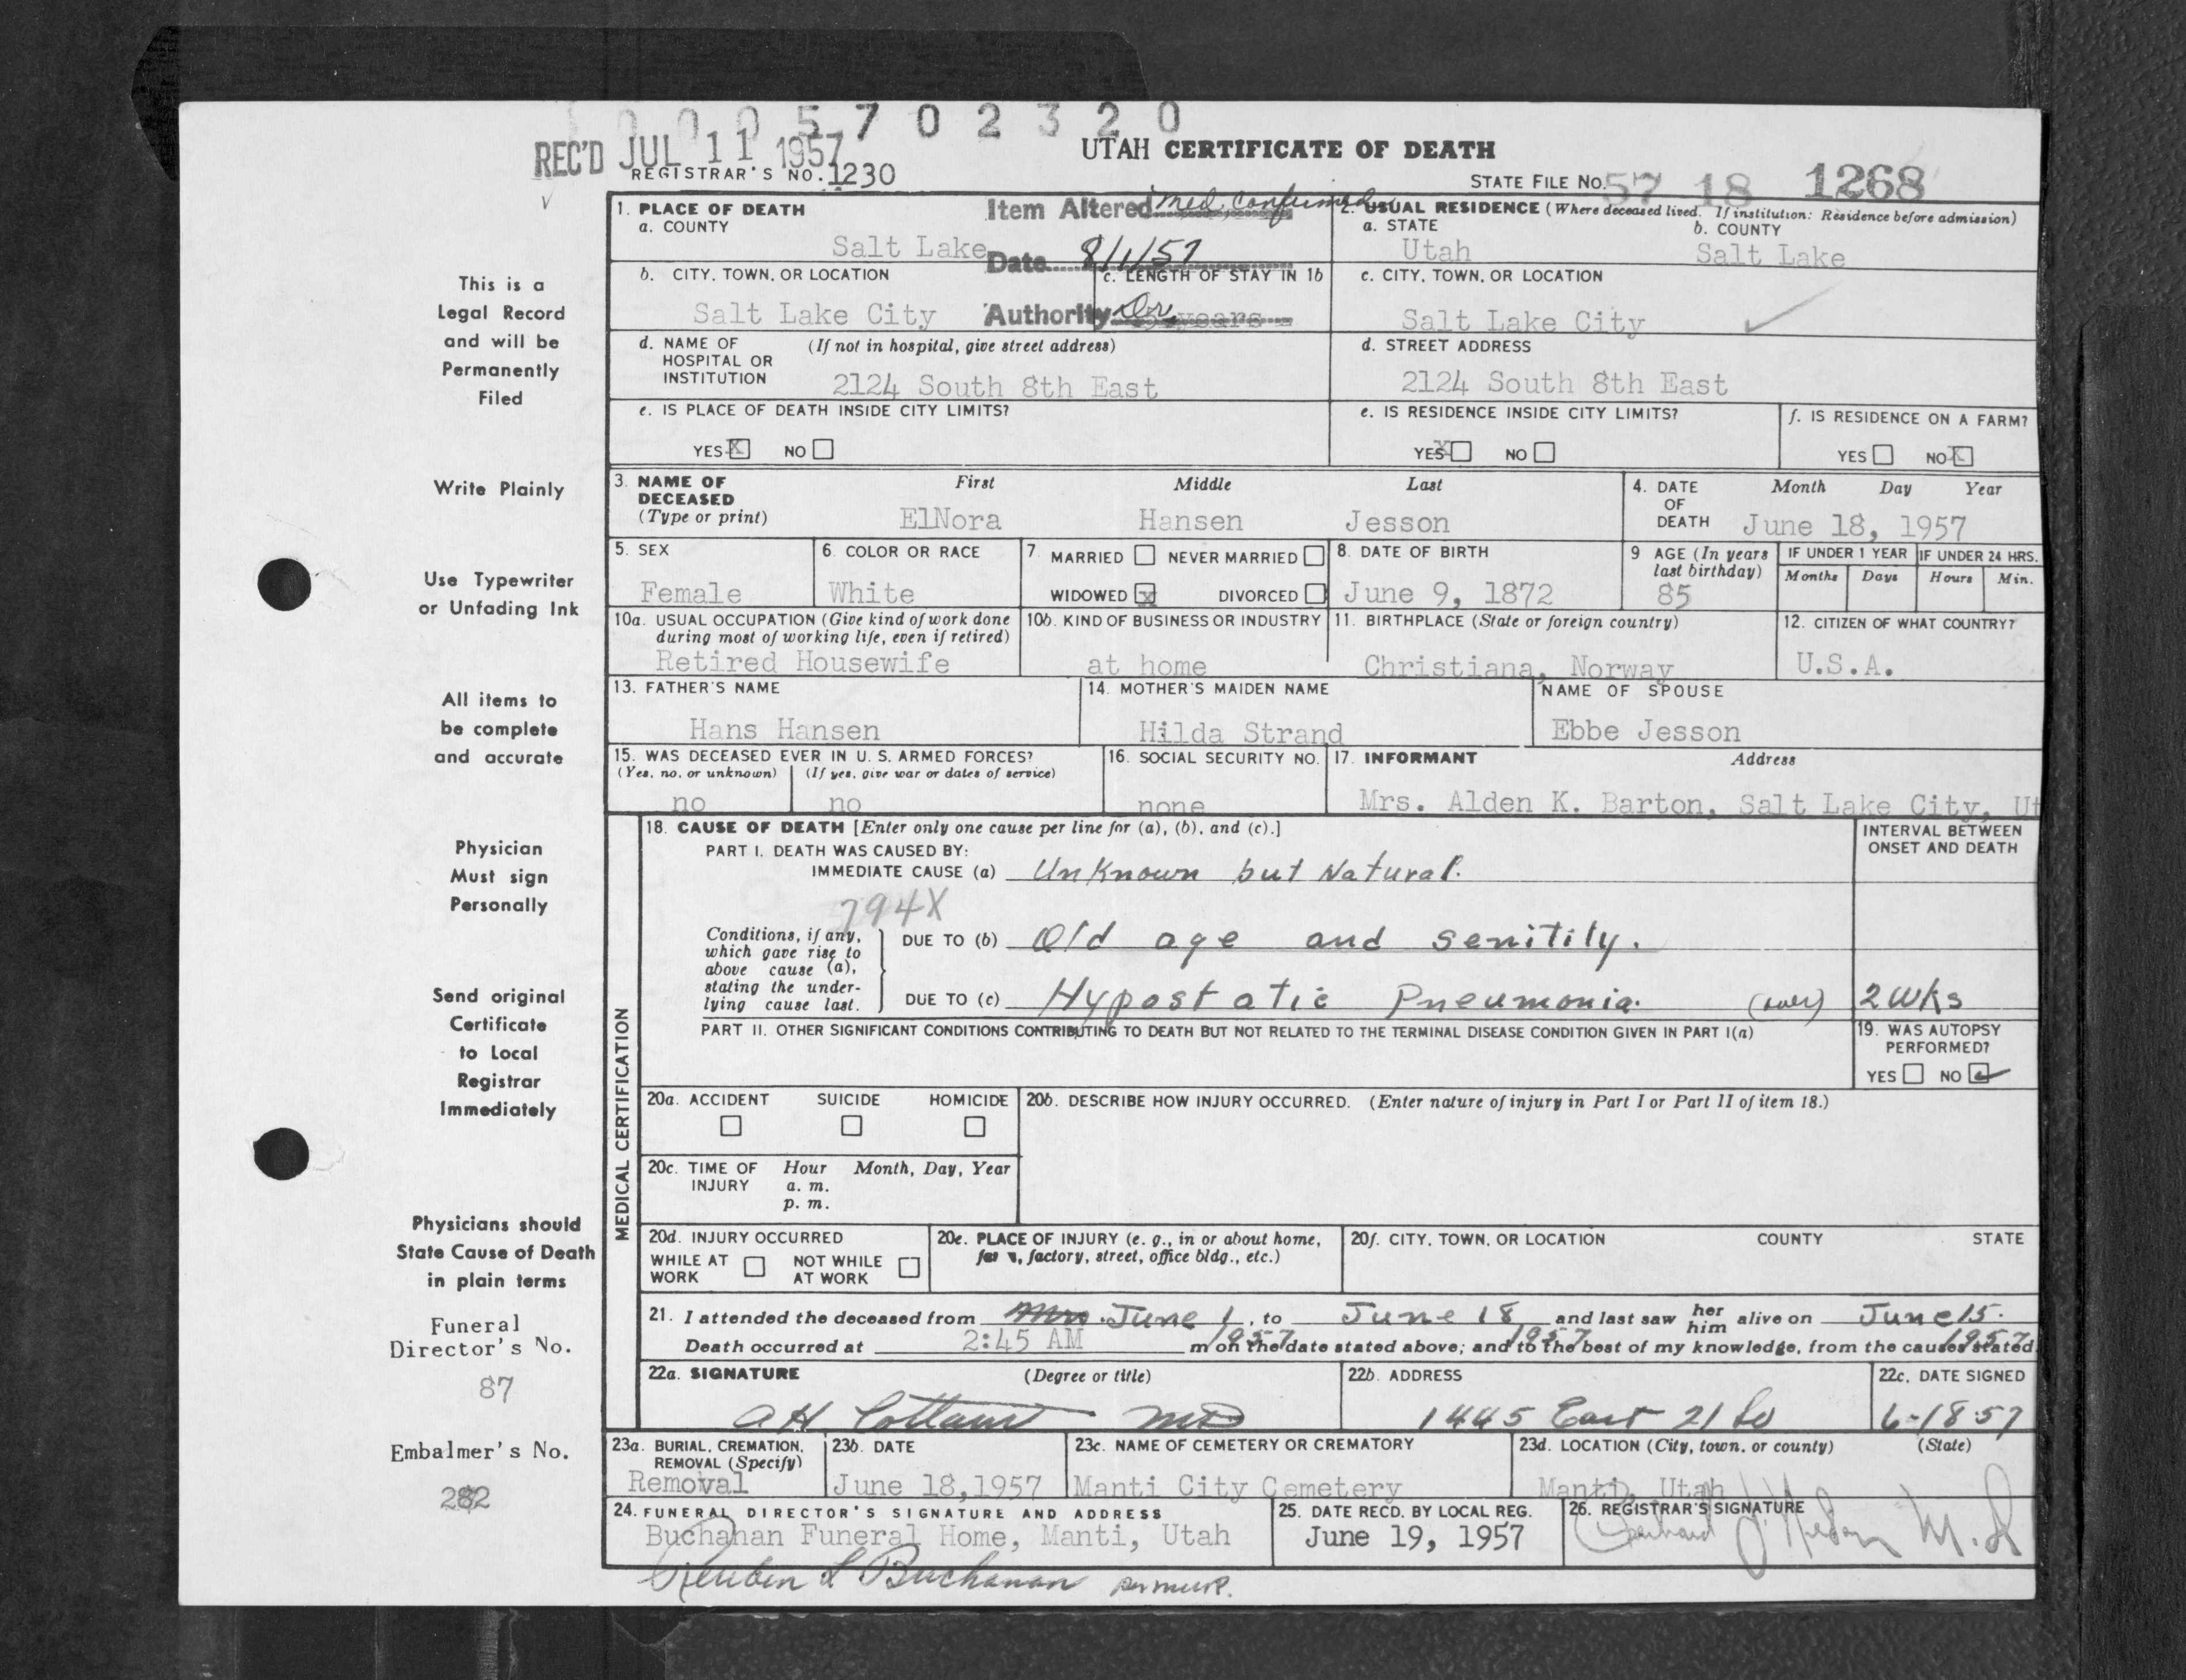 0 0 0 5 7 0 2 3 2 0
REC'D JUL 11 1957
UTAH CERTIFICATE OF DEATH
REGISTRAR'S NO. 1230
STATE FILE NO. 57 18 1268
1. PLACE OF DEATH
a. COUNTY
Salt Lake
Item Altered Med. Confirmed
Date 8/1/57
Authority Dr
2. USUAL RESIDENCE (Where deceased lived. If institution: Residence before admission)
a. STATE b. COUNTY
Utah Salt Lake
b. CITY, TOWN, OR LOCATION
Salt Lake City
c. LENGTH OF STAY IN 1b
years
c. CITY, TOWN, OR LOCATION
Salt Lake City
d. NAME OF HOSPITAL OR INSTITUTION (If not in hospital, give street address)
2124 South 8th East
d. STREET ADDRESS
2124 South 8th East
e. IS PLACE OF DEATH INSIDE CITY LIMITS?
YES X NO
e. IS RESIDENCE INSIDE CITY LIMITS?
YES X NO
f. IS RESIDENCE ON A FARM?
YES NO X
3. NAME OF DECEASED (Type or print)
First Middle Last
ElNora Hansen Jesson
4. DATE OF DEATH Month Day Year
June 18, 1957
5. SEX
Female
6. COLOR OR RACE
White
7. MARRIED NEVER MARRIED
WIDOWED X DIVORCED
8. DATE OF BIRTH
June 9, 1872
9 AGE (In years last birthday)
85
IF UNDER 1 YEAR IF UNDER 24 HRS.
Months Days Hours Min.
10a. USUAL OCCUPATION (Give kind of work done during most of working life, even if retired)
Retired Housewife
10b. KIND OF BUSINESS OR INDUSTRY
at home
11. BIRTHPLACE (State or foreign country)
Christiana, Norway
12. CITIZEN OF WHAT COUNTRY?
U.S.A.
13. FATHER'S NAME
Hans Hansen
14. MOTHER'S MAIDEN NAME
Hilda Strand
NAME OF SPOUSE
Ebbe Jesson
15. WAS DECEASED EVER IN U. S. ARMED FORCES?
(Yes, no, or unknown) (If yes, give war or dates of service)
no no
16. SOCIAL SECURITY NO.
none
17. INFORMANT Address
Mrs. Alden K. Barton, Salt Lake City, Ut
MEDICAL CERTIFICATION
18. CAUSE OF DEATH [Enter only one cause per line for (a), (b), and (c).]
INTERVAL BETWEEN ONSET AND DEATH
PART I. DEATH WAS CAUSED BY:
IMMEDIATE CAUSE (a) Unknown but Natural.
794X
Conditions, if any, which gave rise to above cause (a), stating the underlying cause last.
DUE TO (b) Old age and senitily.
DUE TO (c) Hypostatic Pneumonia. (over) 2 wks
PART II. OTHER SIGNIFICANT CONDITIONS CONTRIBUTING TO DEATH BUT NOT RELATED TO THE TERMINAL DISEASE CONDITION GIVEN IN PART I(a)
19. WAS AUTOPSY PERFORMED?
YES NO ✓
20a. ACCIDENT SUICIDE HOMICIDE
20b. DESCRIBE HOW INJURY OCCURRED. (Enter nature of injury in Part I or Part II of item 18.)
20c. TIME OF INJURY Hour Month, Day, Year
a. m.
p. m.
20d. INJURY OCCURRED
WHILE AT WORK NOT WHILE AT WORK
20e. PLACE OF INJURY (e. g., in or about home, farm, factory, street, office bldg., etc.)
20f. CITY, TOWN, OR LOCATION COUNTY STATE
21. I attended the deceased from June 1, to June 18 and last saw her him alive on June 15.
1957 1957 1957
Death occurred at 2:45 AM m on the date stated above; and to the best of my knowledge, from the causes stated.
22a. SIGNATURE (Degree or title)
MD
22b. ADDRESS
1445 East 21 So
22c. DATE SIGNED
6-18-57
23a. BURIAL, CREMATION, REMOVAL (Specify)
Removal
23b. DATE
June 18,1957
23c. NAME OF CEMETERY OR CREMATORY
Manti City Cemetery
23d. LOCATION (City, town, or county) (State)
Manti, Utah
24. FUNERAL DIRECTOR'S SIGNATURE AND ADDRESS
Buchanan Funeral Home, Manti, Utah
Reuben L Buchanan
25. DATE RECD. BY LOCAL REG.
June 19, 1957
26. REGISTRAR'S SIGNATURE
This is a
Legal Record
and will be
Permanently
Filed
Write Plainly
Use Typewriter
or Unfading Ink
All items to
be complete
and accurate
Physician
Must sign
Personally
Send original
Certificate
to Local
Registrar
Immediately
Physicians should
State Cause of Death
in plain terms
Funeral
Director's No.
87
Embalmer's No.
282